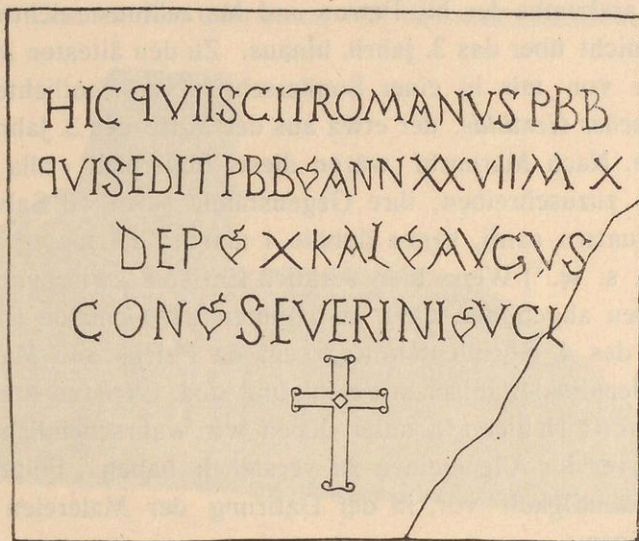 HIC qVIISCIT ROMANVS PBB
qVI SEDIT PBB ❦ ANN XXVII M X
DEP ❦ X KAL ❦ AVGVS
CON ❦ SEVERINI ❦ VCL